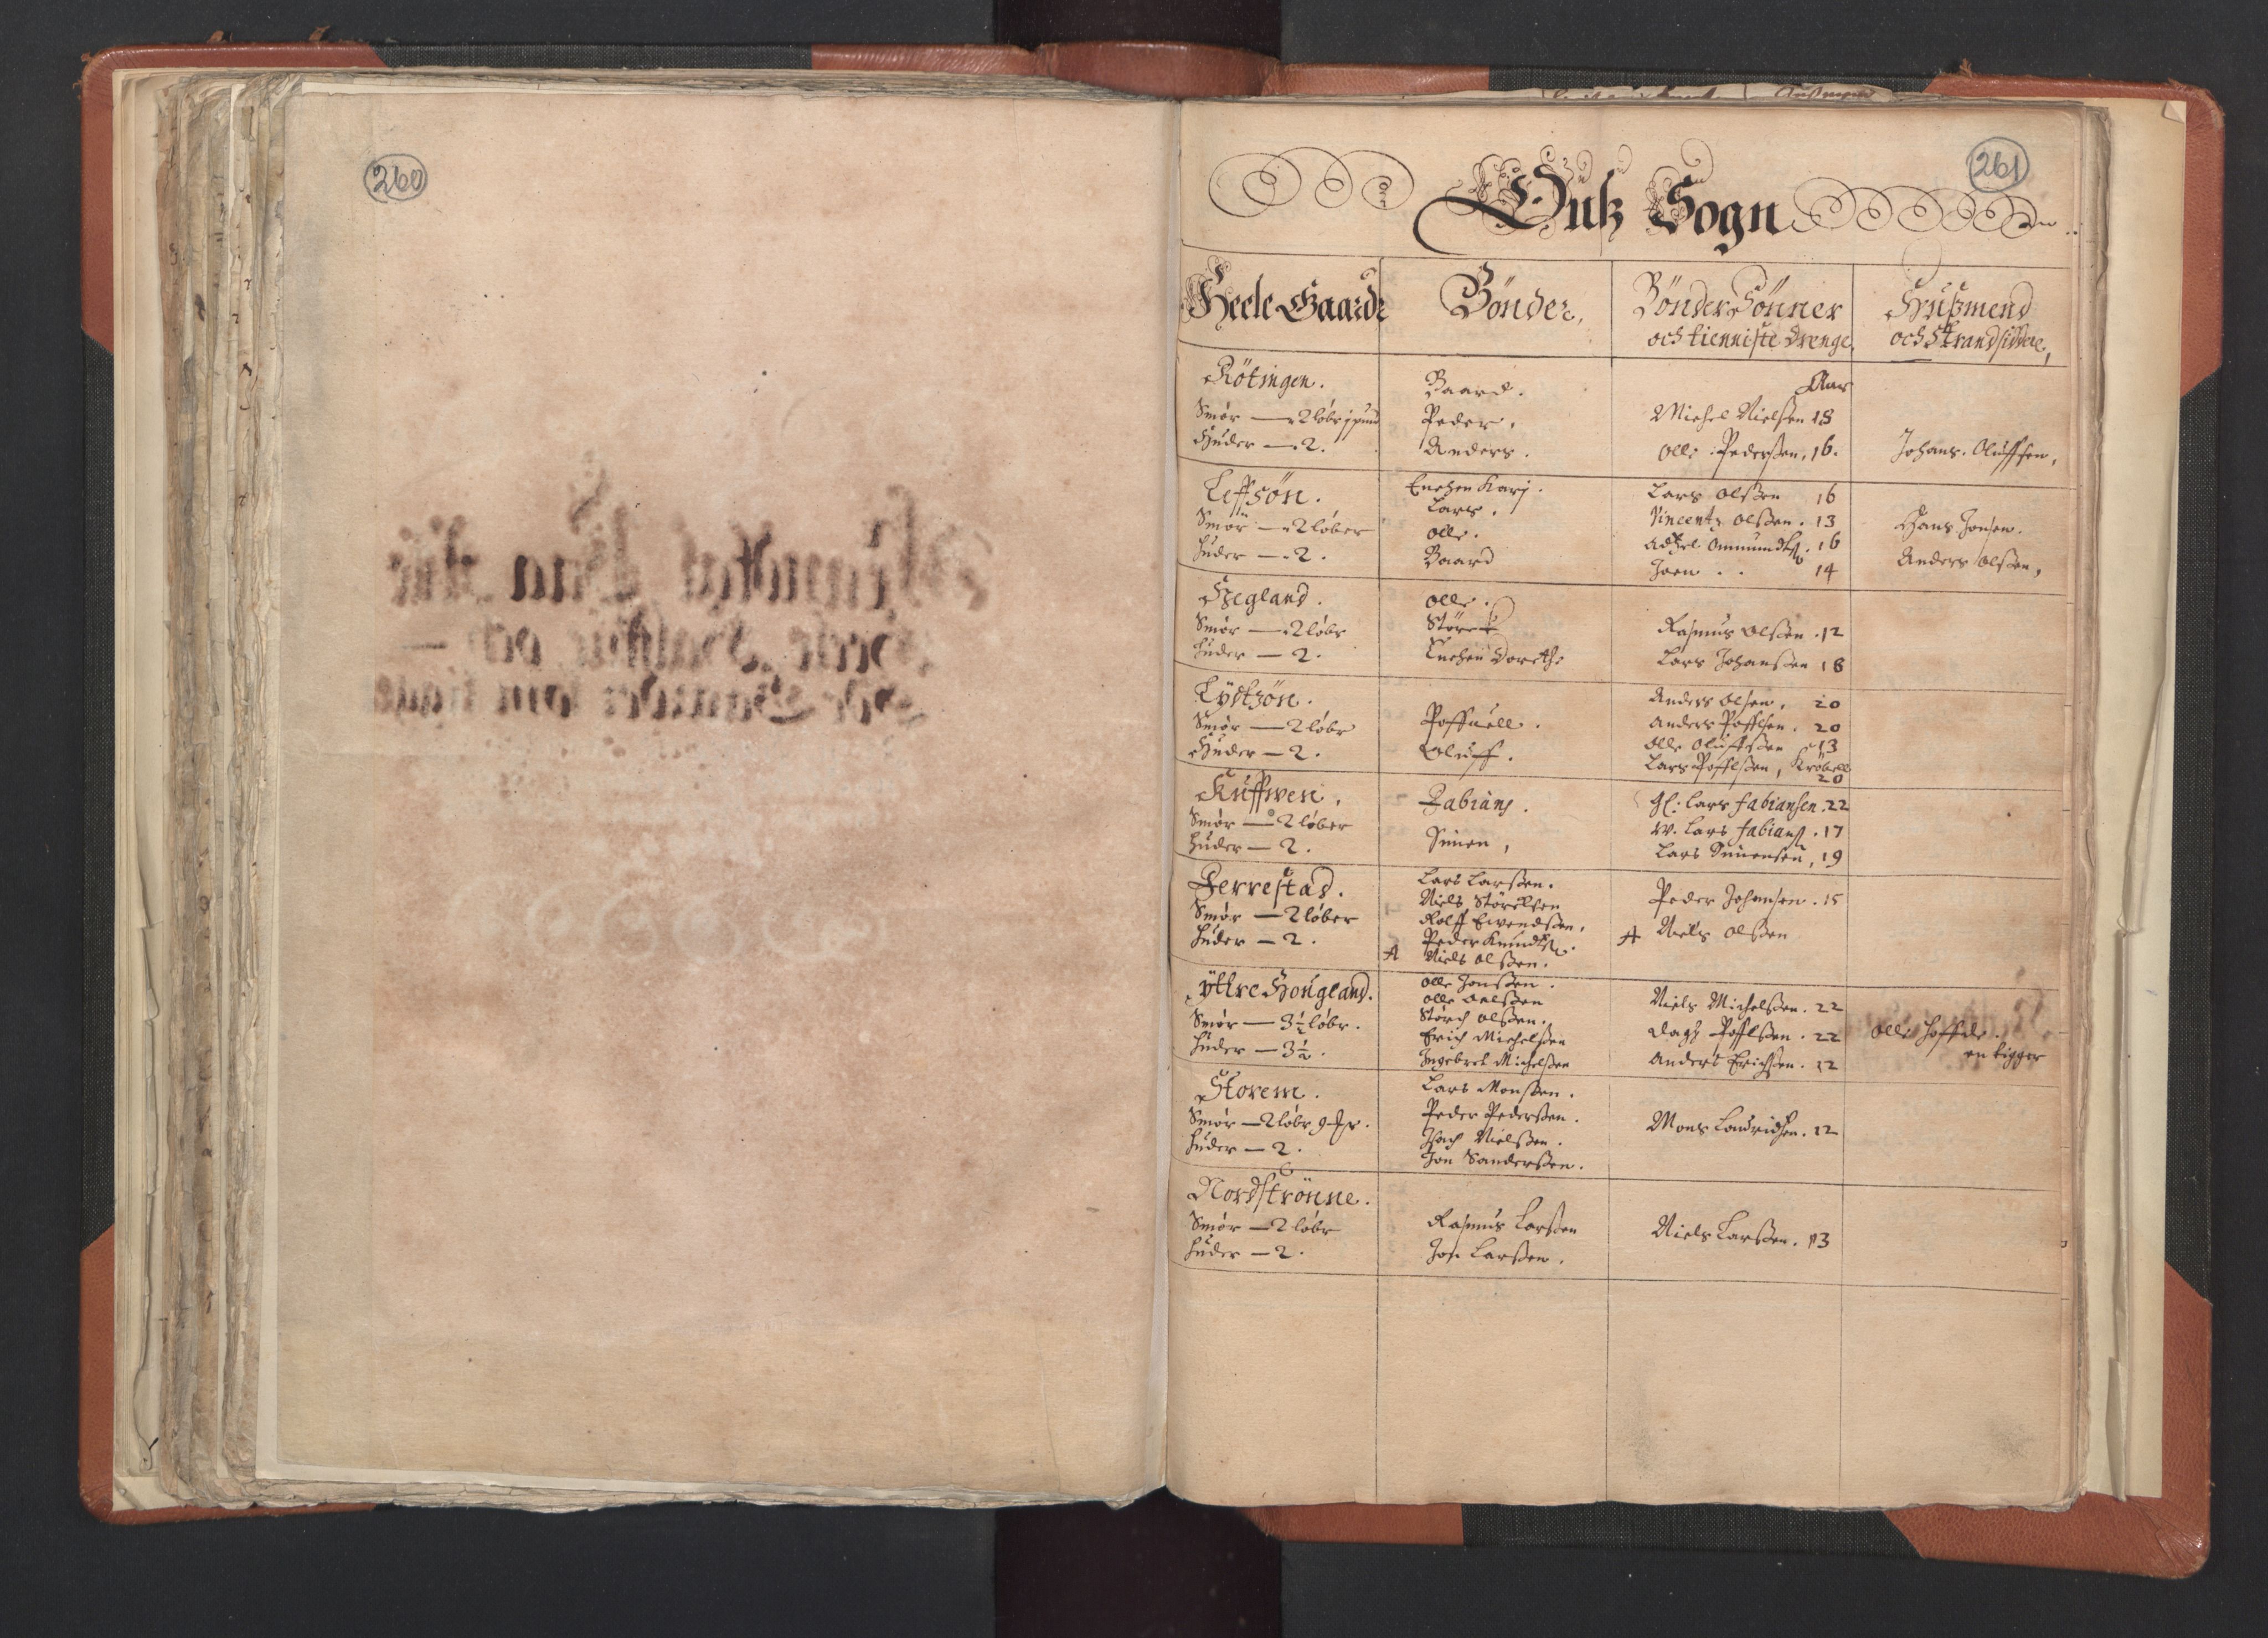 260
261
Sogn
Heele Gaarde
Bönder,
Bönder Sönner
och tienniste drenge,
Hußmend
och Strandsiddere,
Aar
Rötingen.
Smör — 2 löbr j pund
Huder — 2.
Baard.
Peder,
Anders.
Michel Nielsen 18
Olle Pederßen, 16.
Johans Oluffsen,
Leffsön.
Smör — 2 löber
Huder — 2.
Enchen Karj.
Lars,
Olle.
Baard
Lars Olßen 16
Vincentz Olßen. 13
Omundß. 16
Joen . . 14
Hans Jonsen.
Anders Olßen,
Hegland.
Smör — 2 löbr
Huder — 2.
Olle.
Störck
Enchen Dorethe
Rasmus Olßen. 12
Lars Johanßen 18
Lystzön.
Smör — 2 löbr
Huder — 2.
Poffuell.
Oluff.
Anders Olsen, 20
Anders Pofflsen. 20
Olle Oluffsßen 13
Lars Pofflßen, Kröbell
20
Kuffven,
Smör — 2 löber
Huder — 2.
Fabians.
Simen,
gl: Lars fabiansen. 22
w. Lars fabianß. 17
Lars Simensen, 19
Ferrestad.
Smör — 2 löber
Huder — 2.
Lars Larßen.
Niels Störckßen
Rolff Ewendßen,
Peder Knudtß.
A Niels Olßen.
Peder Johansen. 15
A Niels Olßen
yttre Hougland.
Smör — 3½ löbr.
Huder — 3½.
Olle Jonßen.
Olle Oelßen
Störch Olßen.
Erich Michelßen
Ingebret Michelßen
Niels Michelßen. 22
Dagh Pofflßen. 22
Anders Erichßen. 12
Olle Hoffde.
en tigger
Storem.
Smör — 2 löbr 9
Huder — 2.
Lars Monsßen.
Peder Pederßen.
Isach Nielßen.
Jon Sanderßen.
Mons Lauridsen. 12
Nordströnne.
Smör — 2 löbr
Huder — 2.
Rasmus Larßen
Jon Larßen.
Niels Larßen. 13